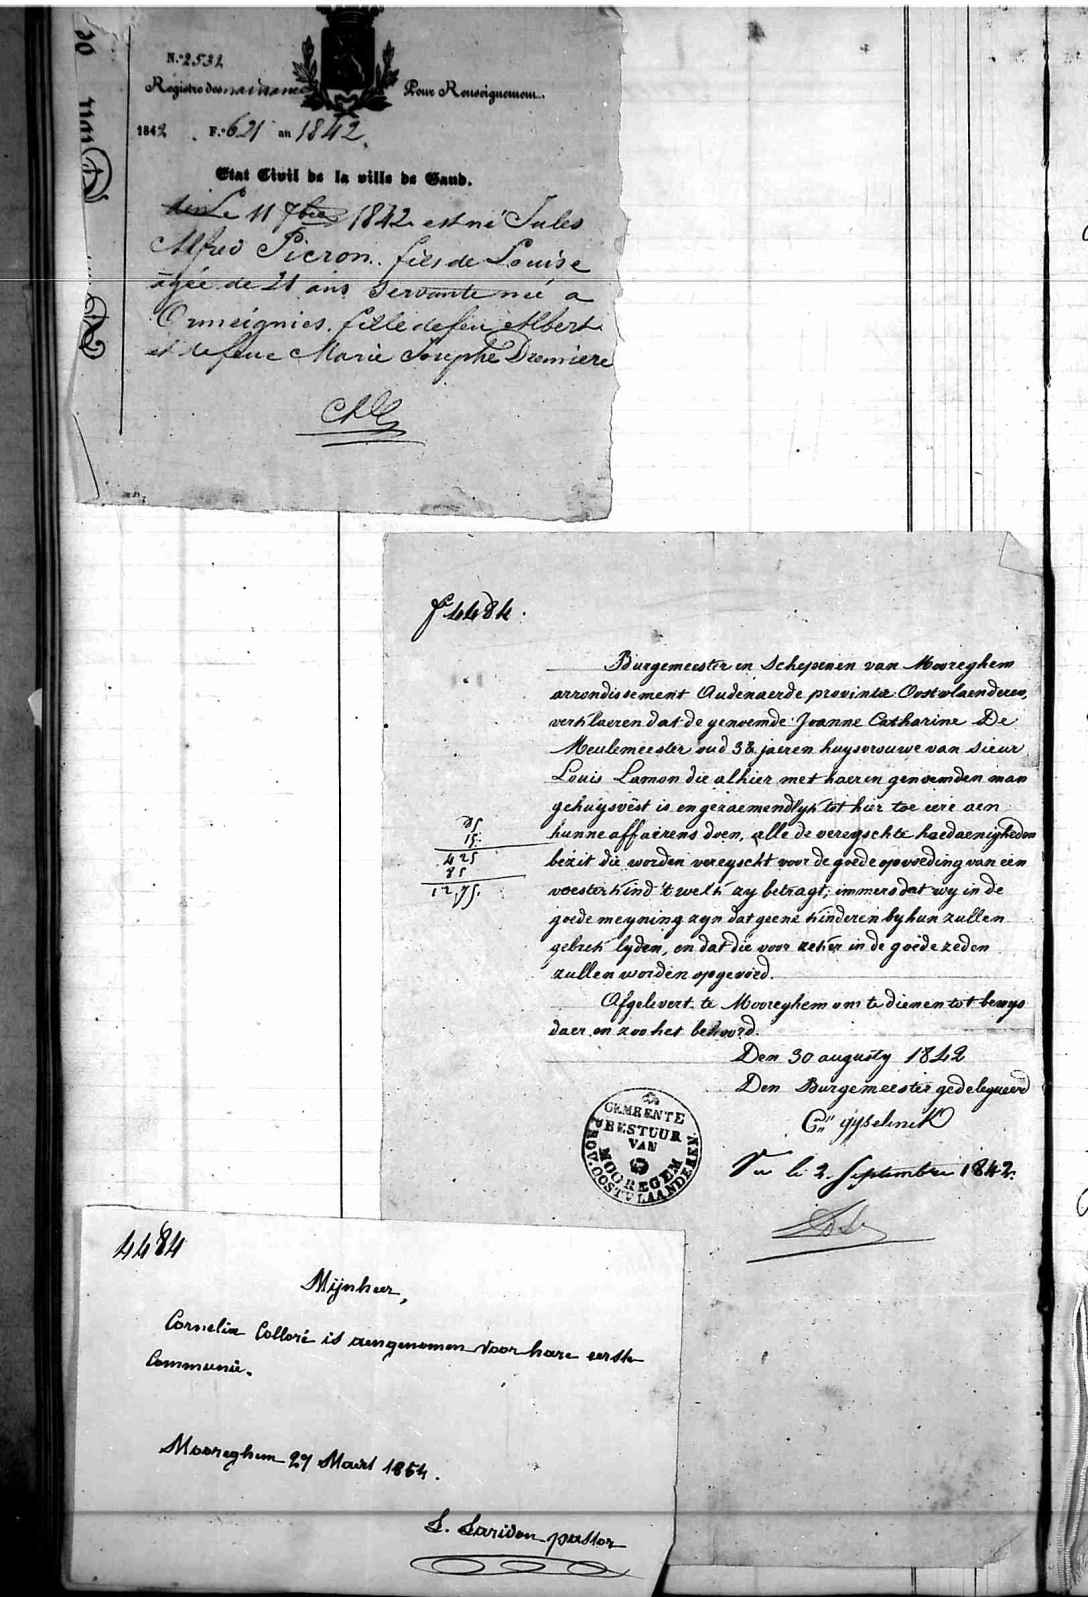 N.º 2531
Registre des naissances Pour Renseignement.
1842 F.º 621 an 1842.
Etat Civil de la ville de Gand.
Le 11 7bre 1842 est né Jules
Alfred Picron. fils de Louise
agée de 21 ans servante née a
Ormeignies. fille de feu Albert
et de feue Marie Josephe Dremiere
4484.
Burgemeester en Schepenen van Mooreghem
arrondissement Audenaerde provintie Oostvlaenderen,
verklaeren dat de genoemde Joanne Catharine De
Meulemeester oud 38 jaeren huysvrouwe van sieur
Louis Lamon die alhier met haeren genoemden man
gehuysvëst is en gezaementlyk tot hier toe eere aen
hunne affairens doen, alle de vereyschte hoedaenigheden
bezit die worden vereyscht voor de goede opvoeding van een
voesterkind 't welk zy betragt; immers dat wy in de
goede meyning zyn dat geene kinderen by hun zullen
gebrek lyden, en dat die voor zeker in de goede zeden
zullen worden opgevoed.
Afgelevert te Mooreghem om te dienen tot bewys
daer en zoo het behoord.
Den 30 augusty 1842
Den Burgemeester gedelegueerd
Gyselinck
Vu le 2 Septembre 1842.
85
15
425
85
12.75.
GEMEENTE
BESTUUR
VAN
MOOREGEM
PROV. OOSTVLAANDEREN.
4484
Mijnheer,
Cornelia Colloré is aengenomen voor hare eerste
Communie.
Mooreghem 27 Maert 1854.
L. Laridon pastor